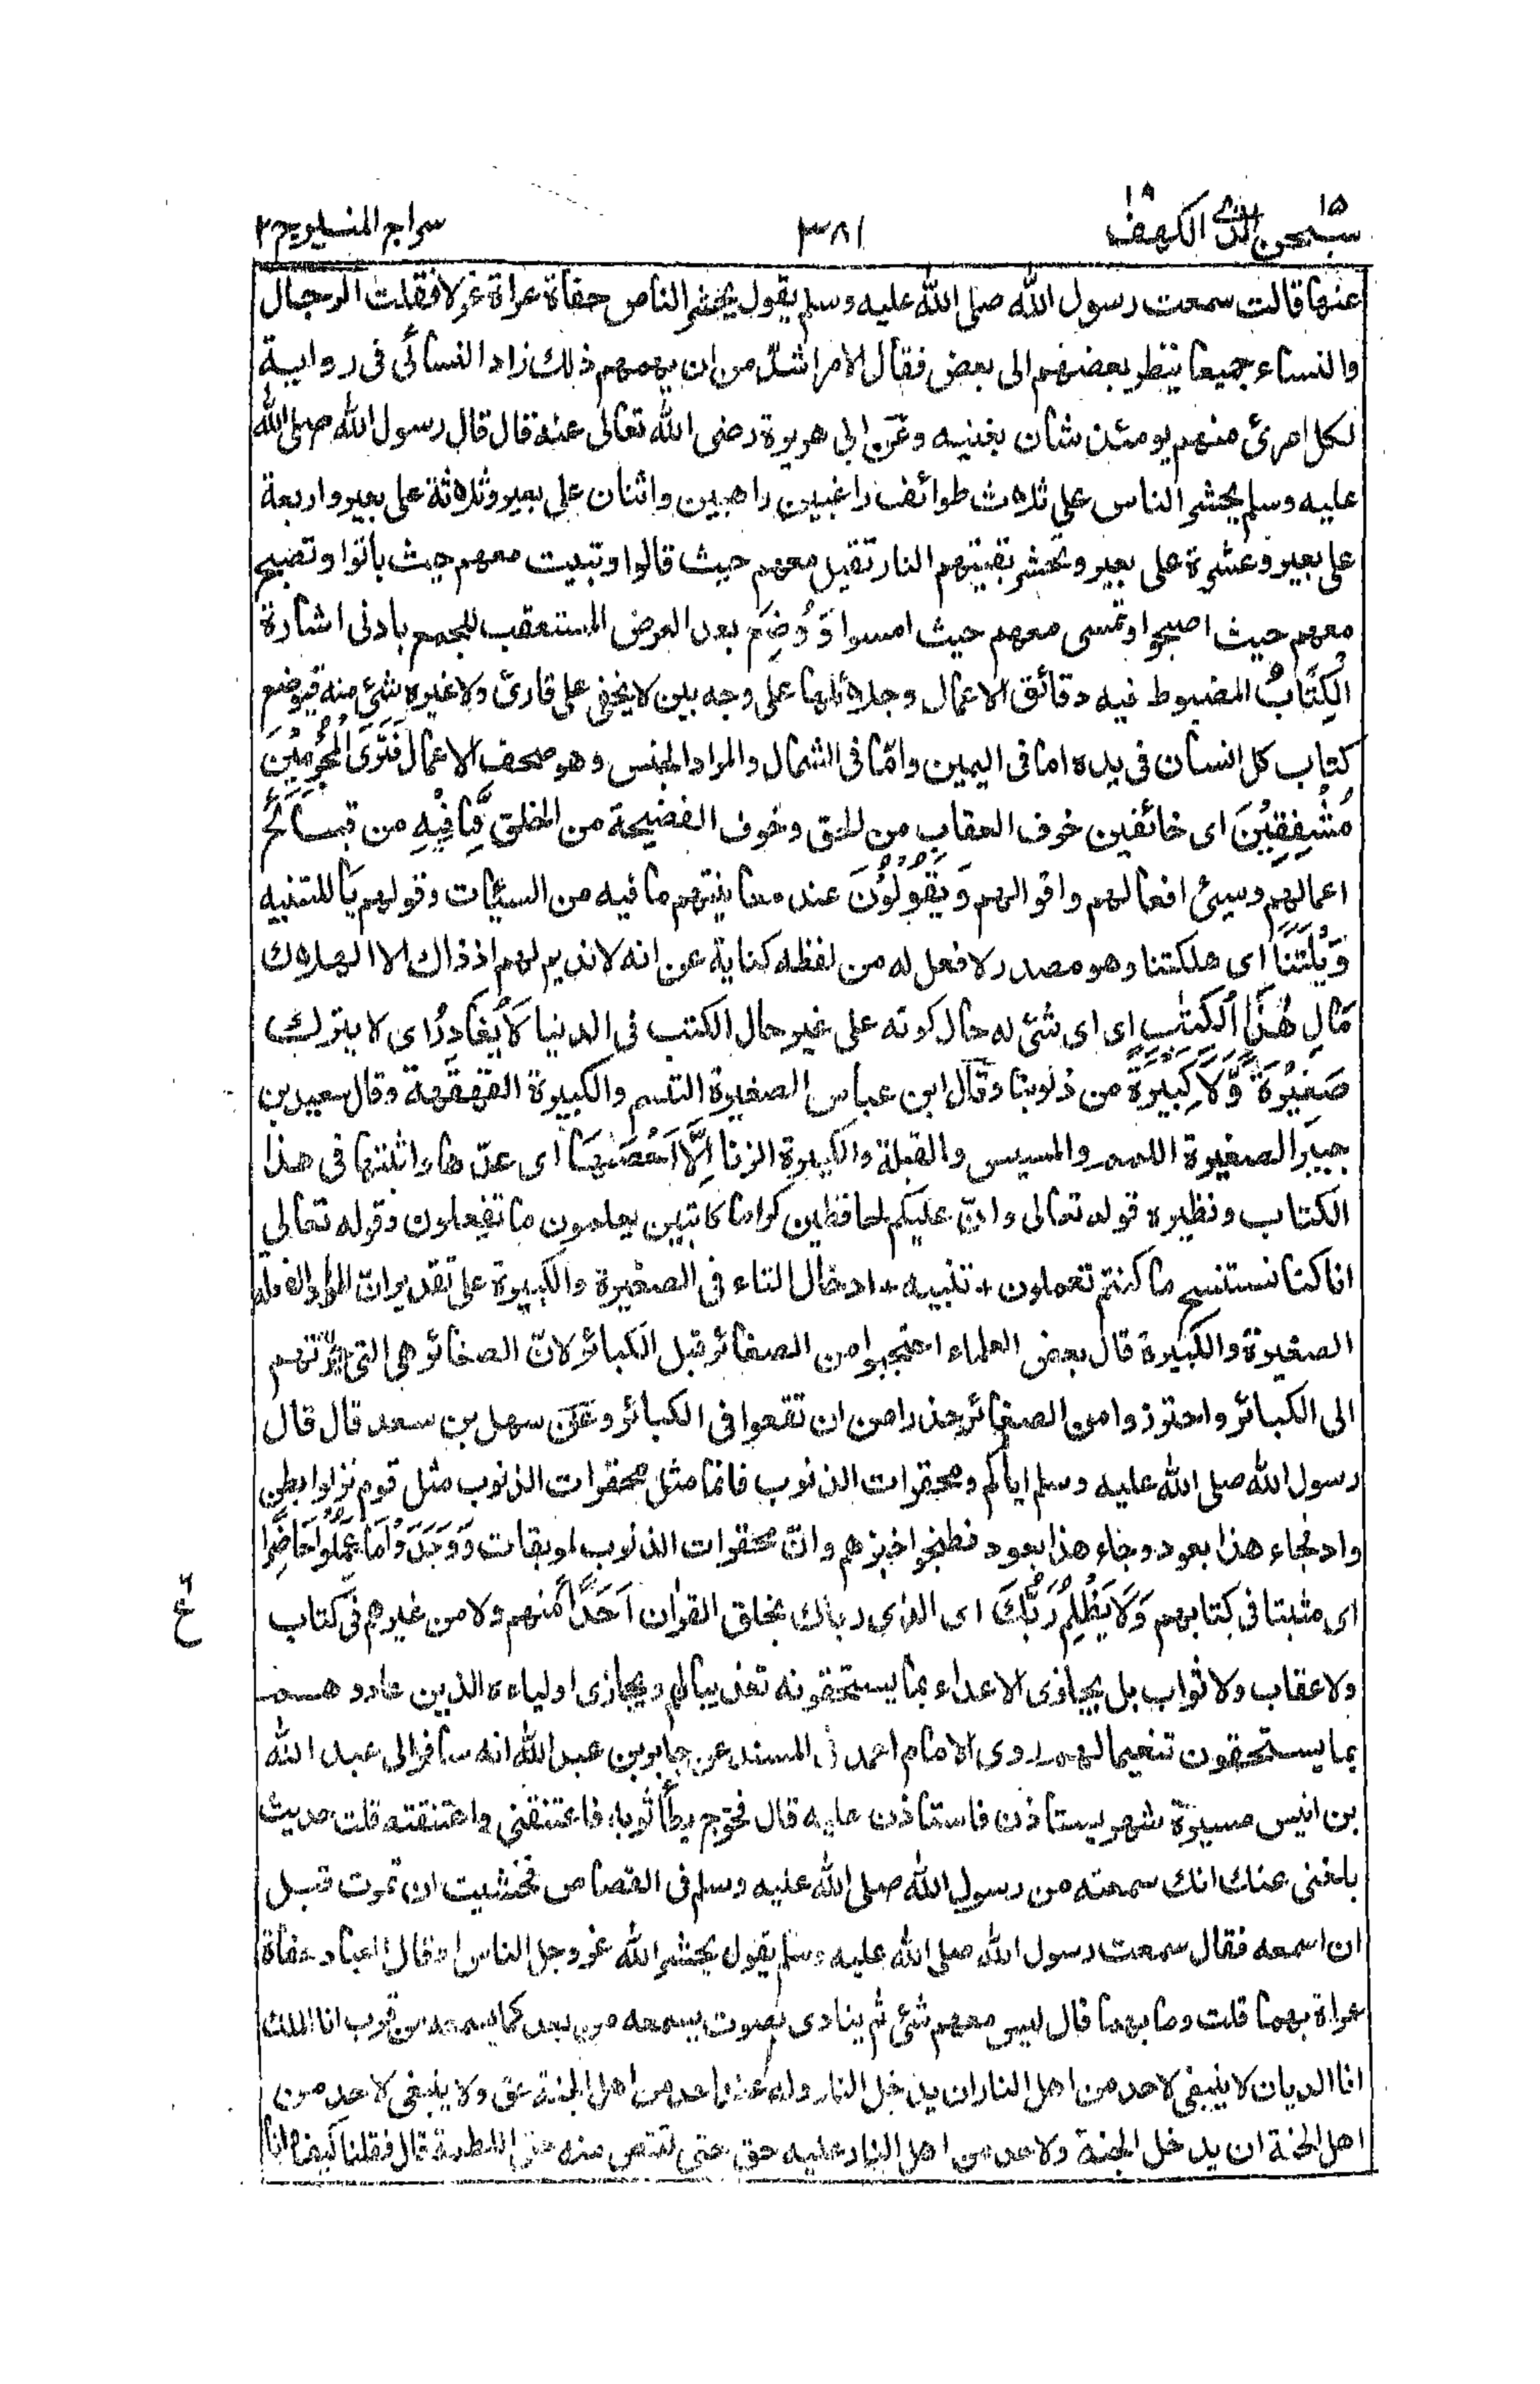 ١٥ ١٨
سبحن الذى الكهف
٣٨١
سراج المنير ج ٢
عنها قالت سمعت رسول الله صلى الله عليه وسلم يقول يحشر الناس حفاة عراة غرلا فقلت الرجال
والنساء جميعا ينظر بعضهم الى بعض فقال الامر اشدّ من ان يهمهم ذلك زاد النسائى فى رواية
لكل امرئ منهم يومئذ شأن يغنيه وعن ابى هريرة رضى الله تعالى عنه قال قال رسول الله صلى الله
عليه وسلم يحشر الناس على ثلاث طوائف راغبين راهبين واثنان على بعير وثلاثة على بعير واربعة
على بعير وعشرة على بعير وتحشر بقيتهم النار تقيل معهم حيث قالوا وتبيت معهم حيث باتوا وتصبح
معهم حيث اصبحوا وتمسى معهم حيث امسوا وَوُضِعَ بعد العرض المستعقب للجمع بادنى اشارة
الْكِتَابُ المضبوط فيه دقائق الاعمال وجلائلها على وجه بين لا يخفى على قارئ ولا غيره شئ منه فيوضع
كتاب كل انسان فى يده اما فى اليمين وامّا فى الشمال والمراد الجنس وهو صحف الاعمال فَتَرَى الْمُجْرِمِيْنَ
مُشْفِقِيْنَ اى خائفين خوف العقاب من الحق وخوف الفضيحة من الخلق مِّمَّا فِيْهِ من قبائح
اعمالهم وسيئ افعالهم واقوالهم وَيَقُوْلُوْنَ عند معاينتهم ما فيه من السيئات وقولهم يَا للتنبيه
وَيْلَتَنَا اى هلكتنا وهو مصدر لا فعل له من لفظه كناية عن انه لا نديم لهم اذ ذاك الا الهلاك
مَالِ هٰذَا الْكِتٰبِ اى اى شئ له حال كونه على غير حال الكتب فى الدنيا لَا يُغَادِرُ اى لا يترك
صَغِيْرَةً وَّلَا كَبِيْرَةً من ذنوبنا وقال ابن عباس الصغيرة التبسم والكبيرة القهقهة وقال سعيد بن
جبير الصغيرة اللمم والمسيس والقبلة والكبيرة الزنا اِلَّا اَحْصٰىهَا اى عدّها واثبتها فى هذا
الكتاب ونظيره قوله تعالى وانّ عليكم لحافظين كراما كاتبين يعلمون ما تفعلون وقوله تعالى
انا كنا نستنسخ ما كنتم تعملون + تنبيه + ادخال التاء فى الصغيرة والكبيرة على تقدير انّ المراد الفعلة
الصغيرة والكبيرة قال بعض العلماء اجتنبوا من الصغائر قبل الكبائر لانّ الصغائر هى التى جرّتهم
الى الكبائر واحترزوا من الصغائر حذرا من ان تقعوا فى الكبائر وعن سهل بن سعد قال قال
رسول الله صلى الله عليه وسلم اياكم ومحقرات الذنوب فانما مثل محقرات الذنوب مثل قوم نزلوا بطن
واد فجاء هذا بعود وجاء هذا بعود فطبخوا خبزهم وانّ محقرات الذنوب لوبقات وَوَجَدُوْا مَا عَمِلُوْا حَاضِرًا
اى مثبتا فى كتابهم وَلَا يَظْلِمُ رَبُّكَ اى الذى رباك بخلق القران اَحَدًا منهم ولا من غيرهم فى كتاب
ولا عقاب ولا ثواب بل يجازى الاعداء بما يستحقونه تعذيبا لهم ويجازى اولياءه الذين عادوهم
بما يستحقون تنعيما لهم روى الامام احمد فى المسند عن جابر بن عبد الله انه سافر الى عبد الله
بن انيس مسيرة شهر يستاذن فاستاذن عليه قال فخرج يطأ ثوبه فاعتنقنى واعتنقته قلت حديث
بلغنى عنك انك سمعته من رسول الله صلى الله عليه وسلم فى القصاص فخشيت ان تموت قبل
ان اسمعه فقال سمعت رسول الله صلى الله عليه وسلم يقول يحشر الله عزوجل الناس او قال العباد حفاة
عراة بهما قلت وما بهما قال ليس معهم شئ ثم ينادى بصوت يسمعه من بعد كما يسمعه من قرب انا الملك
انا الديان لا ينبغى لاحد من اهل النار ان يدخل النار وله عند احد من اهل الجنة حق ولا ينبغى لاحد من
اهل الجنة ان يدخل الجنة ولاحد من اهل النار عليه حق حتى تقتص منه حتى اللطمة قال فقلنا كيف انا
ع